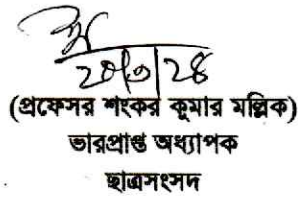 (প্রফেসর শংকর কুমার মল্লিক)
ভারপ্রাপ্ত অধ্যাপক
ছাত্রসংসদ